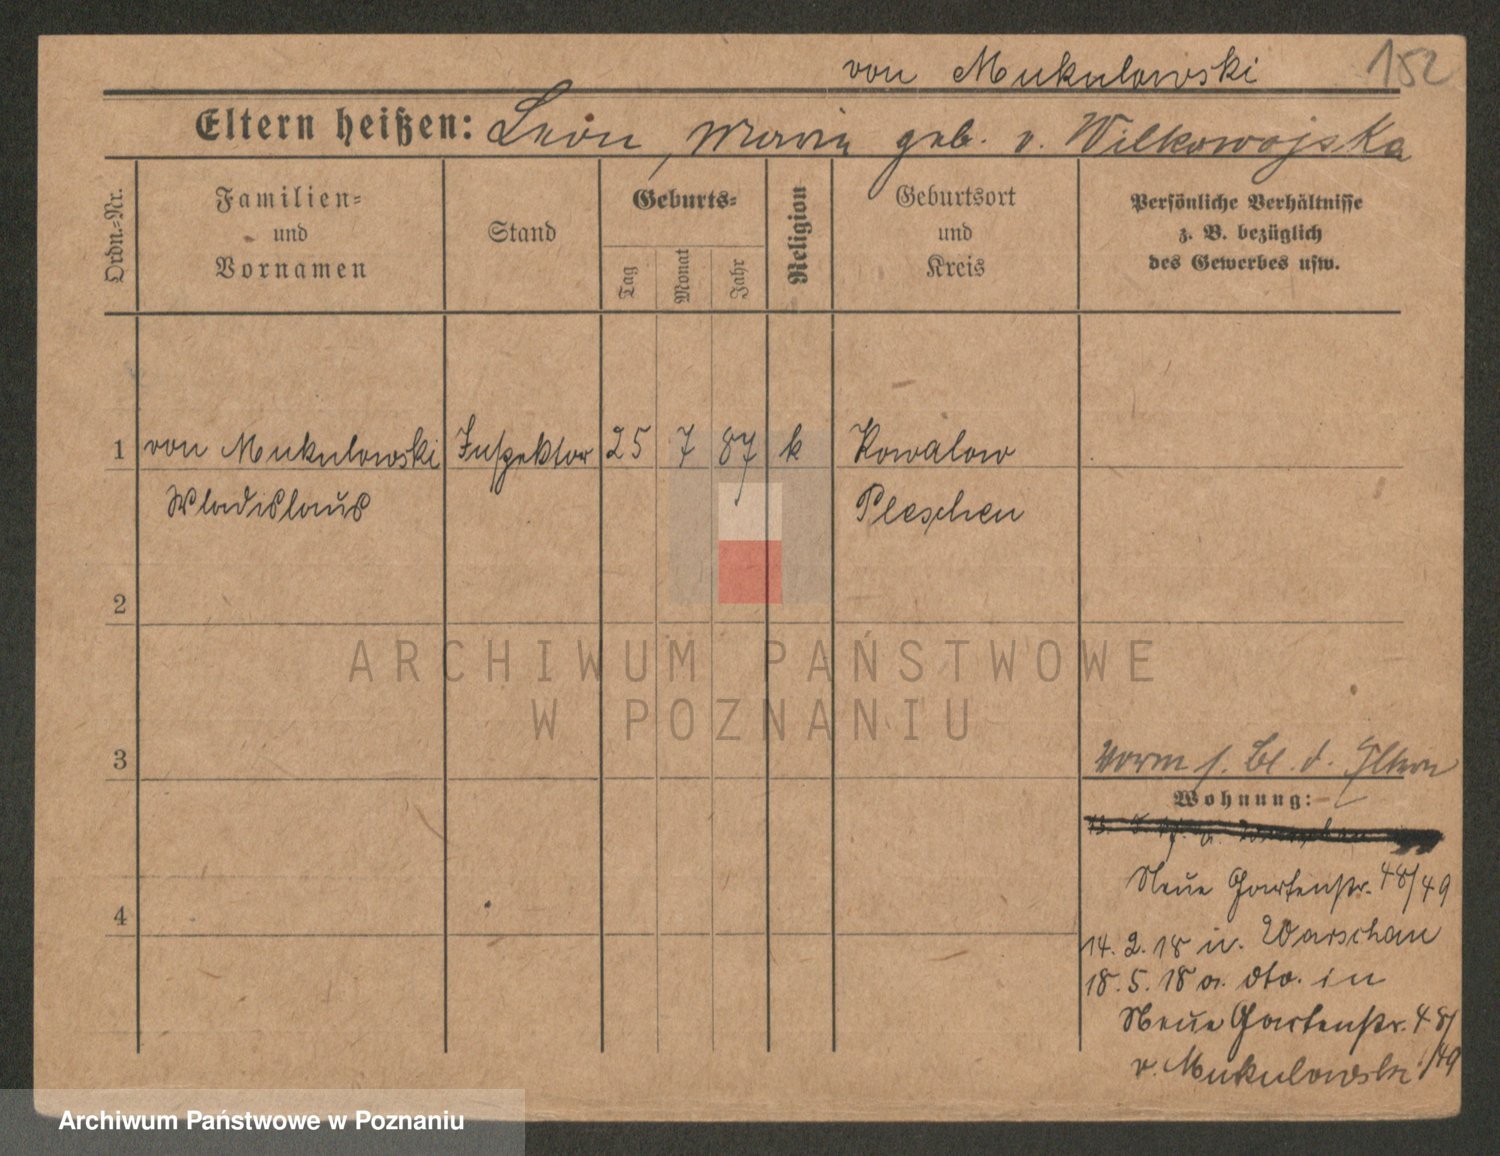 von Mukulowski 152
Eltern heißen: Leon, Maria geb. v. Wilkowojska
Ordn.-Nr.
Familien-
und
Vornamen
Stand
Geburts-
Tag
Monat
Jahr
Religion
Geburtsort
und
Kreis
Persönliche Verhältnisse
z. B. bezüglich
des Gewerbes usw.
1 von Mukulowski Inspektor 25 7 87 k Kowalow
Wladislaus Pleschen
2
ARCHIWUM PAŃSTWOWE
W POZNANIU
3
Vorm f. Bl. d. Eltern
Wohnung:
Neue Gartenstr. 48/49
4
14. 2. 18 n. Warschau
18. 5. 18 a. dto. in
Neue Gartenstr. 48/
v. Mukulowski /49
Archiwum Państwowe w Poznaniu